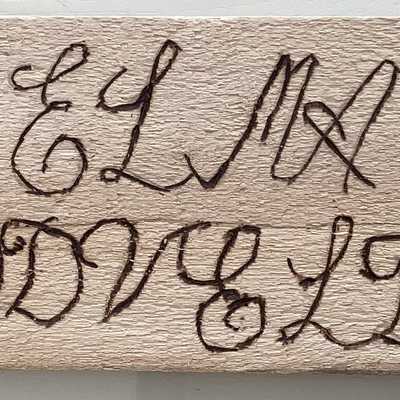 ELMA
DVEL